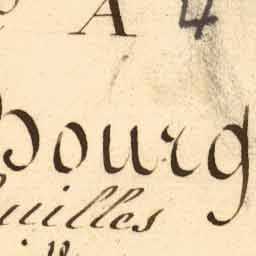 A 4
bourg
uilles